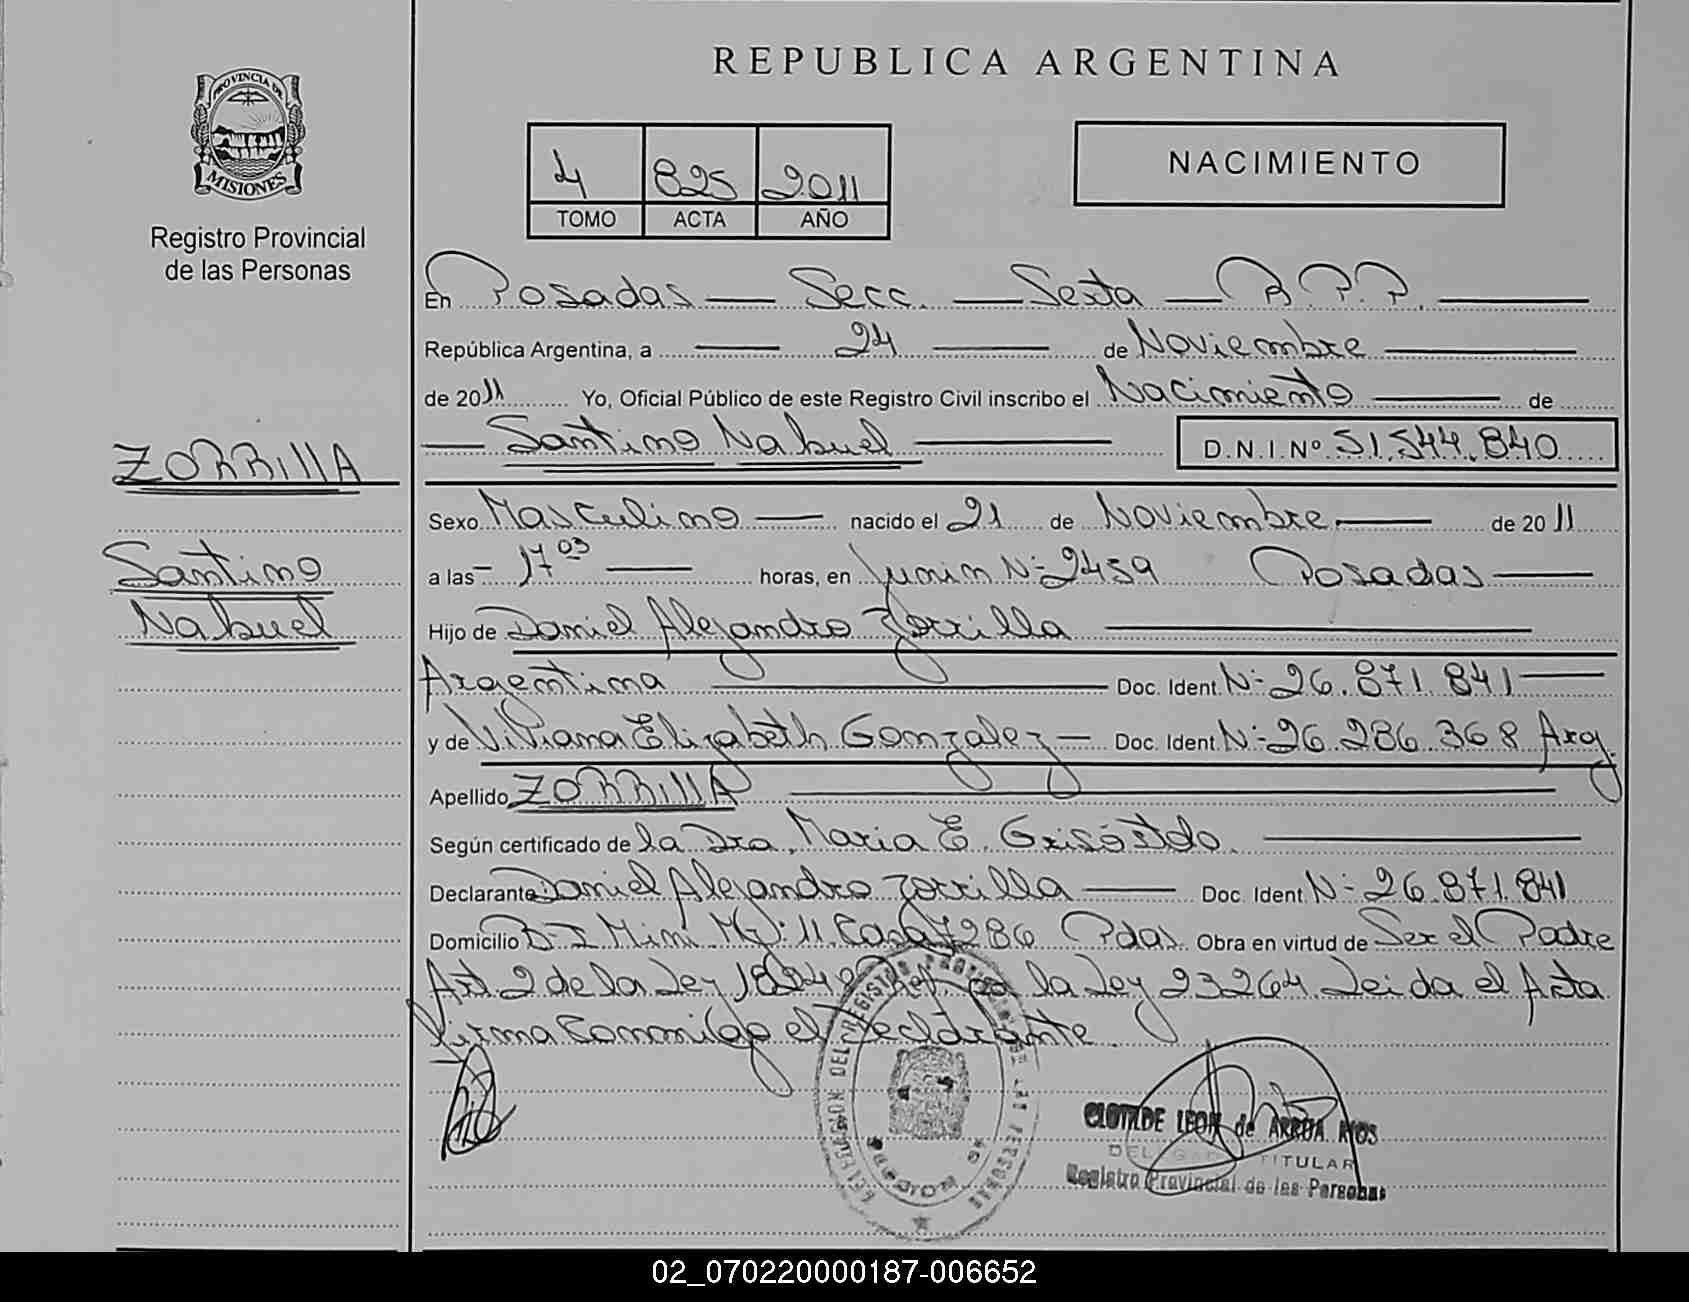 REPUBLICA ARGENTINA
PROVINCIA DE
MISIONES
Registro Provincial
de las Personas
4 825 2011
TOMO ACTA AÑO
NACIMIENTO
En Posadas — Secc. — Sexta — R.P.P. —
República Argentina, a — 24 — de Noviembre —
de 2011 Yo, Oficial Público de este Registro Civil inscribo el Nacimiento — de
— Santino Nahuel — D.N.I.Nº 51.544.840
ZORRILLA
Santino
Nahuel
Sexo Masculino — nacido el 21 de Noviembre — de 2011
a las - 17 03 — horas, en Junin Nº 2459 Posadas —
Hijo de Daniel Alejandro Zorrilla —
Argentina — Doc. Ident. Nº 26.871.841 —
y de Viviana Elizabeth Gonzalez — Doc. Ident. Nº 26.286.368 Arg.
Apellido ZORRILLA —
Según certificado de la Dra. Maria E. —
Declarante Daniel Alejandro Zorrilla — Doc. Ident. Nº 26.871.841
Domicilio Casa 7286 Pdas. Obra en virtud de Ser el Padre
Art. 2 de la Ley 18248 la Ley 23264 Leida el Acta
firma Conmigo el Declarante.
CLOTILDE LEON de ARRUA RIOS
DELEGADA TITULAR
Registro Provincial de las Personas
02_070220000187-006652